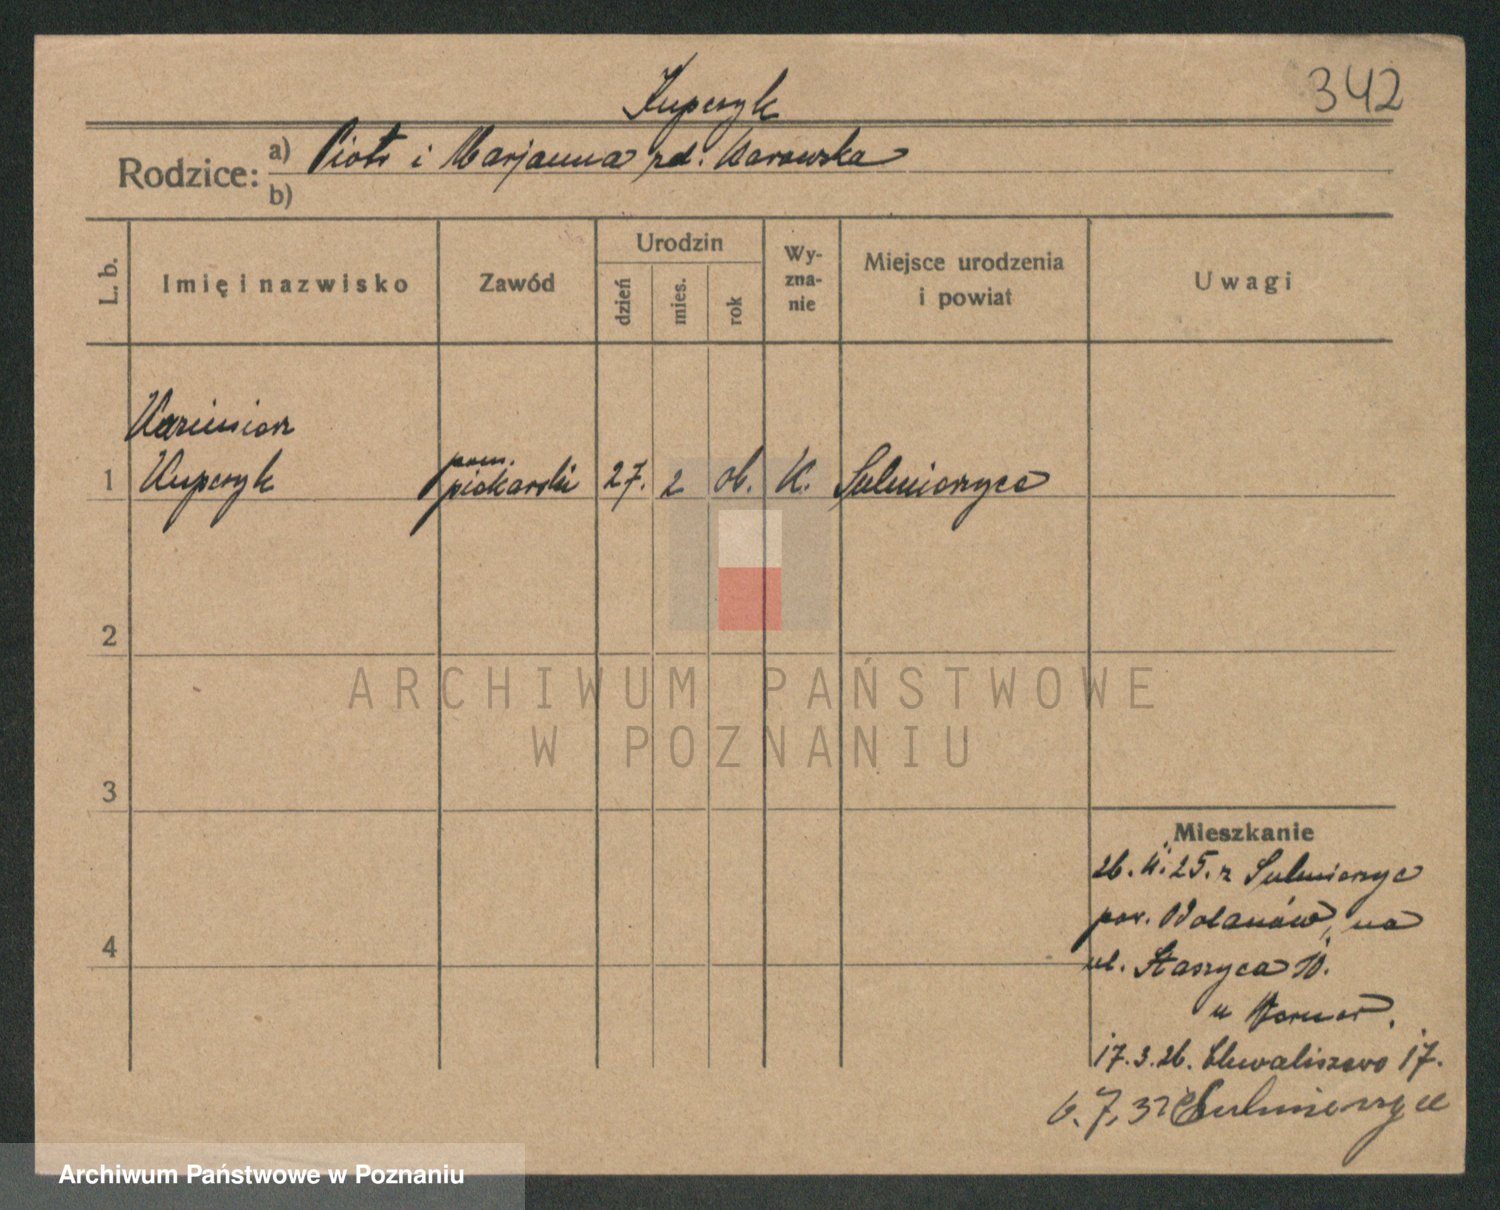 342
Kupczyk
Rodzice: a) Piotr i Marjanna zd. Karowska
b)
L. b.
Imię i nazwisko
Zawód
Urodzin
dzień
mies.
rok
Wy-
zna-
nie
Miejsce urodzenia
i powiat
Uwagi
Kazimierz
1 Kupczyk
pom.
piekarski
27. 2 06. K. Sulmierzyce
2
3
4
ARCHIWUM PAŃSTWOWE
W POZNANIU
Mieszkanie
26. 11. 25. z Sulmierzyc
pow. Odolanów, na
ul. Staszyca 10.
u
17.3.26. Chwaliszewo 17.
6.7,32 Sulmierzyce
Archiwum Państwowe w Poznaniu